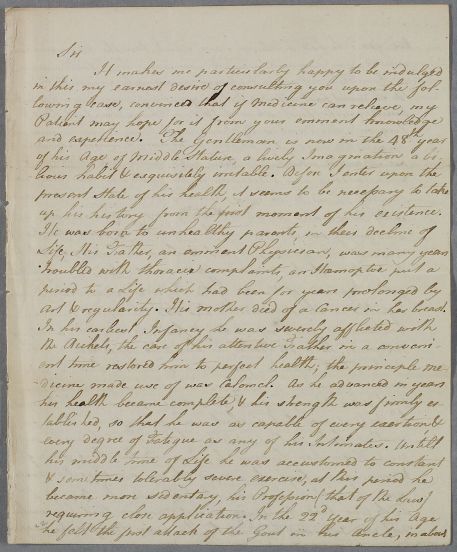 Sir
It makes me particularly happy to be indulged
in this my earnest desire of consulting you upon the fol-
lowing case, convinced that if Medicine can relieve, my
Patient may hope for it from your eminent knowledge
and experience. The Gentleman is now in the 48th year
of his Age of middle Stature, a lively Imagination, a bi-
lious habit & exquisitely irritable. Before I enter upon the
present State of his health it seems to be necessary to take
up his history from the first moment of his existence.
He was born to unhealthy parents in their decline of
Life, His Father, an eminent Physician, was many years
troubled with thoracic complaints, an Hæmoptoe put a
period to a Life which had been for years prolonged by
art & regularity. His mother died of a Cancer in her breast.
In his earliest Infancy he was severely afflicted with
the Rickets, the care of his attentive Father in a conveni-
ent time restored him to perfect health; the principle me-
dicine made use of was Calomel. As he advanced in years
his health became complete, & his strength was firmly es-
tablished, so that he was as capable of every exertion &
every degree of Fatigue as any of his Intimates. Untill
his middle time of Life he was accustomed to constant
& sometimes tolerably severe exercise, at this period he
became more sedentary, his Profession (that of the Law)
requiring close application. In the 22d year of his Age
he felt the first attack of the Gout in his Ancle, in about